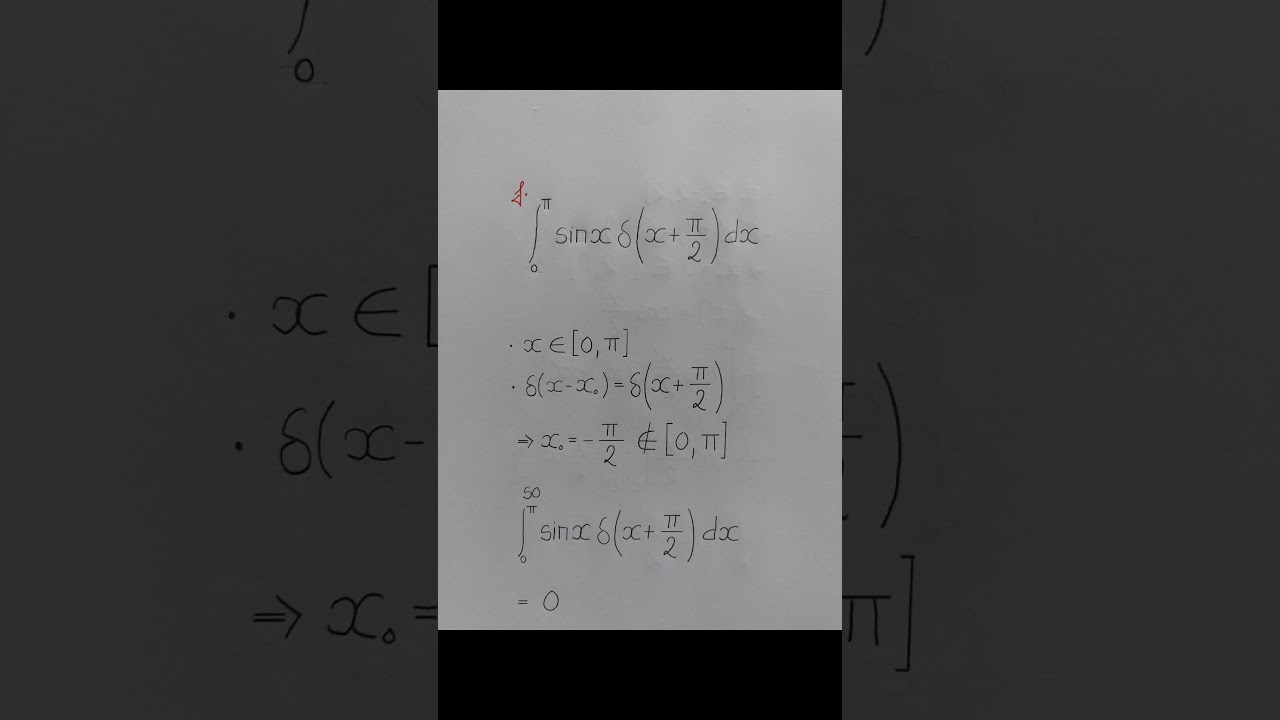 1.
∫₀^π sinx δ(x+π/2)dx
· x ∈ [0,π]
· δ(x-x₀)=δ(x+π/2)
⇒ x₀=-π/2 ∉ [0,π]
so
∫₀^π sinx δ(x+π/2) dx
= 0